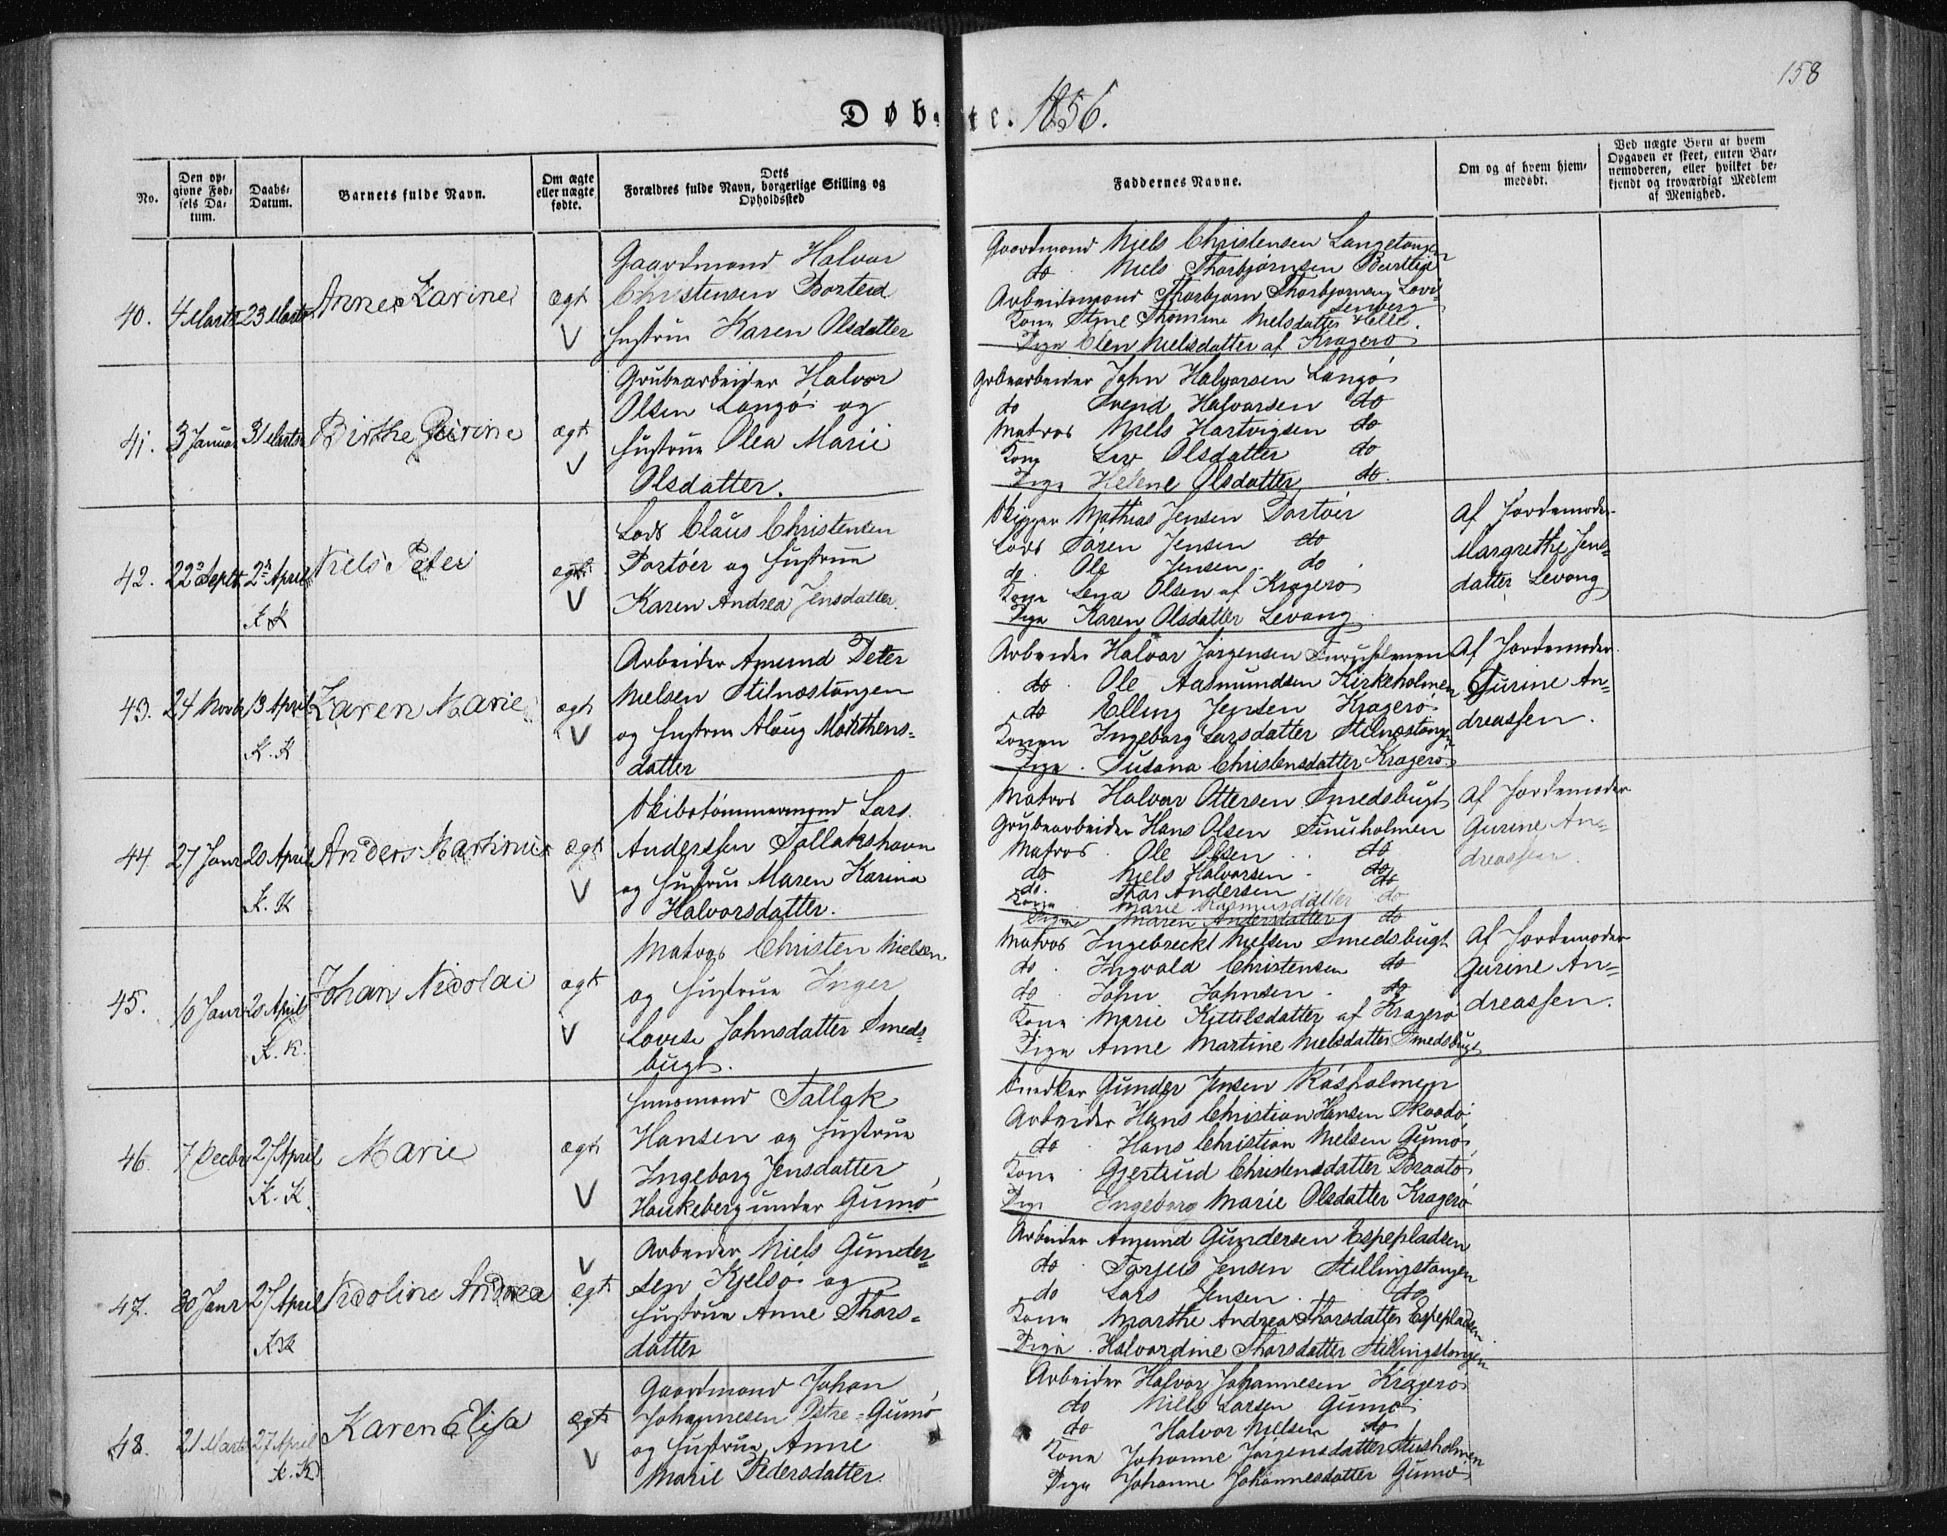 158
Døbte. 1856.
No.
Den opgivne Fødsels Datum.
Daabs-Datum.
Barnets fulde Navn.
Om ægte eller uægte fødte.
Dets Forældres fulde Navn, borgerlige Stilling og Opholdssted
Faddernes Navne.
Om og af hvem hjemmedøbt.
Ved uægte Børn af hvem Opgaven er skeet, enten Barnemoderen, eller hvilket bekjendt og troværdigt Medlem af Menighed.
40. 4 Marts 23 Marts Anne Karine ægt
Gaardmand Halvor
Christensen
Hustrue Karen Olsdatter
Gaardmand Niels Christensen Langetangen
do Niels Thorbjørnsen
Arbeidsmand Thorbjørn Thorbjørnsen
Kone Stine Thomine Nielsdatter Helle.
Pige Elen Nielsdatter af Kragerø
41. 3 Januar 31 Marts Birthe Gurine ægt
Grubearbeider Halvor
Olsen Langø og
Hustrue Olea Marie
Olsdatter.
Grbearbeider John Halvorsen Langø
do Svend Halvorsen do
Matros Niels Hartvigsen do
Kone Liv Olsdatter do
Pige Helene Olsdatter do.
42. 22 Septr 2 April Niels Peter ægt
K. K
Lods Claus Christensen
Portöer og Hustrue
Karen Andrea Jensdatter.
Skipper Mathias Jensen Portöer
Lods Søren Jensen do
do Ole Jensen do
Kone Lena Olsen af Kragerø
Pige Karen Olsdatter Levang
Af Jordemoder
Margrethe Jens-
datter Levang
43. 24 Novbr 13 April Karen Marie ægt
K. K
Arbeider Amund Peter
Nielsen Stilnæstangen
og Hustrue Aloug Morthens-
datter
Arbeider Halvor Jørgensen Furuholmen
do Ole Aasmundsen Kirkeholmen
do Elling Jensen Kragerø
Konen Ingeborg Larsdatter Stilnæstangen
Pige Susana Christensdatter Kragerø
Af Jordemoder
Gurine An-
dreassen.
44. 27 Janr 20 April Anders Martinius ægt
K. K
Skibstømmermand Lars
Anderssen Tallakshavn
og Hustrue Maren Karine
Halvorsdatter.
Matros Halvor Ottersen Smedsbugt
Grubearbeider Hans Olsen Furuholmen
Matros Ole Olsen do
do Niels Halvorsen do
do. Thor Andersen do
Kone Marie Rasmusdatter do
Pige Maren Andersdatter do
Af Jordemoder
Gurine An-
dreassen.
45. 10 Janr 20 April Johan Nicolai ægt
K. K.
Matros Christen Nielsen
og Hustrue Inger
Lovise Johnsdatter Smeds-
bugt.
Matros Ingebreckt Nielsen Smedsbugt
do Ingvald Christensen do
do John Johnsen do
Kone Marie Kittelsdatter af Kragerø
Pige Anne Martine Nielsdatter Smedsbugt
Af Jordemoder
Gurine An-
dreassen.
46. 7 Decbr 27 April Marie ægt
K. K
Huusmand Tallak
Hansen og Hustrue
Ingeborg Jensdatter
Haukeberg under Gumø
Snedker Gunder Jensen Kåsholmen
Arbeider Hans Christian Hansen Skaadø
do Hans Christian Nielsen Gumø
Kone Gjertrud Christensdatter Braatø
Pige Ingeborg Marie Olsdatter Kragerø
47. 30 Janr 27 April Nicoline Andrea ægt
K. K
Arbeider Niels Gunder-
sen Kjelsø og
Hustrue Anne Thors-
datter
Arbeider Amund Gundersen Espepladsen
do Torjeis Jensen Stillingstangen
do Lars Jensen do
Kone Marthe Andrea Thorsdatter Espepladsen
Pige Halvordine Thorsdatter Stillingstangen
48. 21 Marts 27 April Karen Elisa ægt
K. K
Gaardmand Johan
Johannesen Østre-Gumø
og Hustrue Anne
Marie Pedersdatter
Arbeider Halvor Johannesen Kragerø
do Niels Larsen Gumø
do Halvor Nielsen do
Kone Johanne Jørgensdatter
Pige Johanne Johannesdatter Gumø